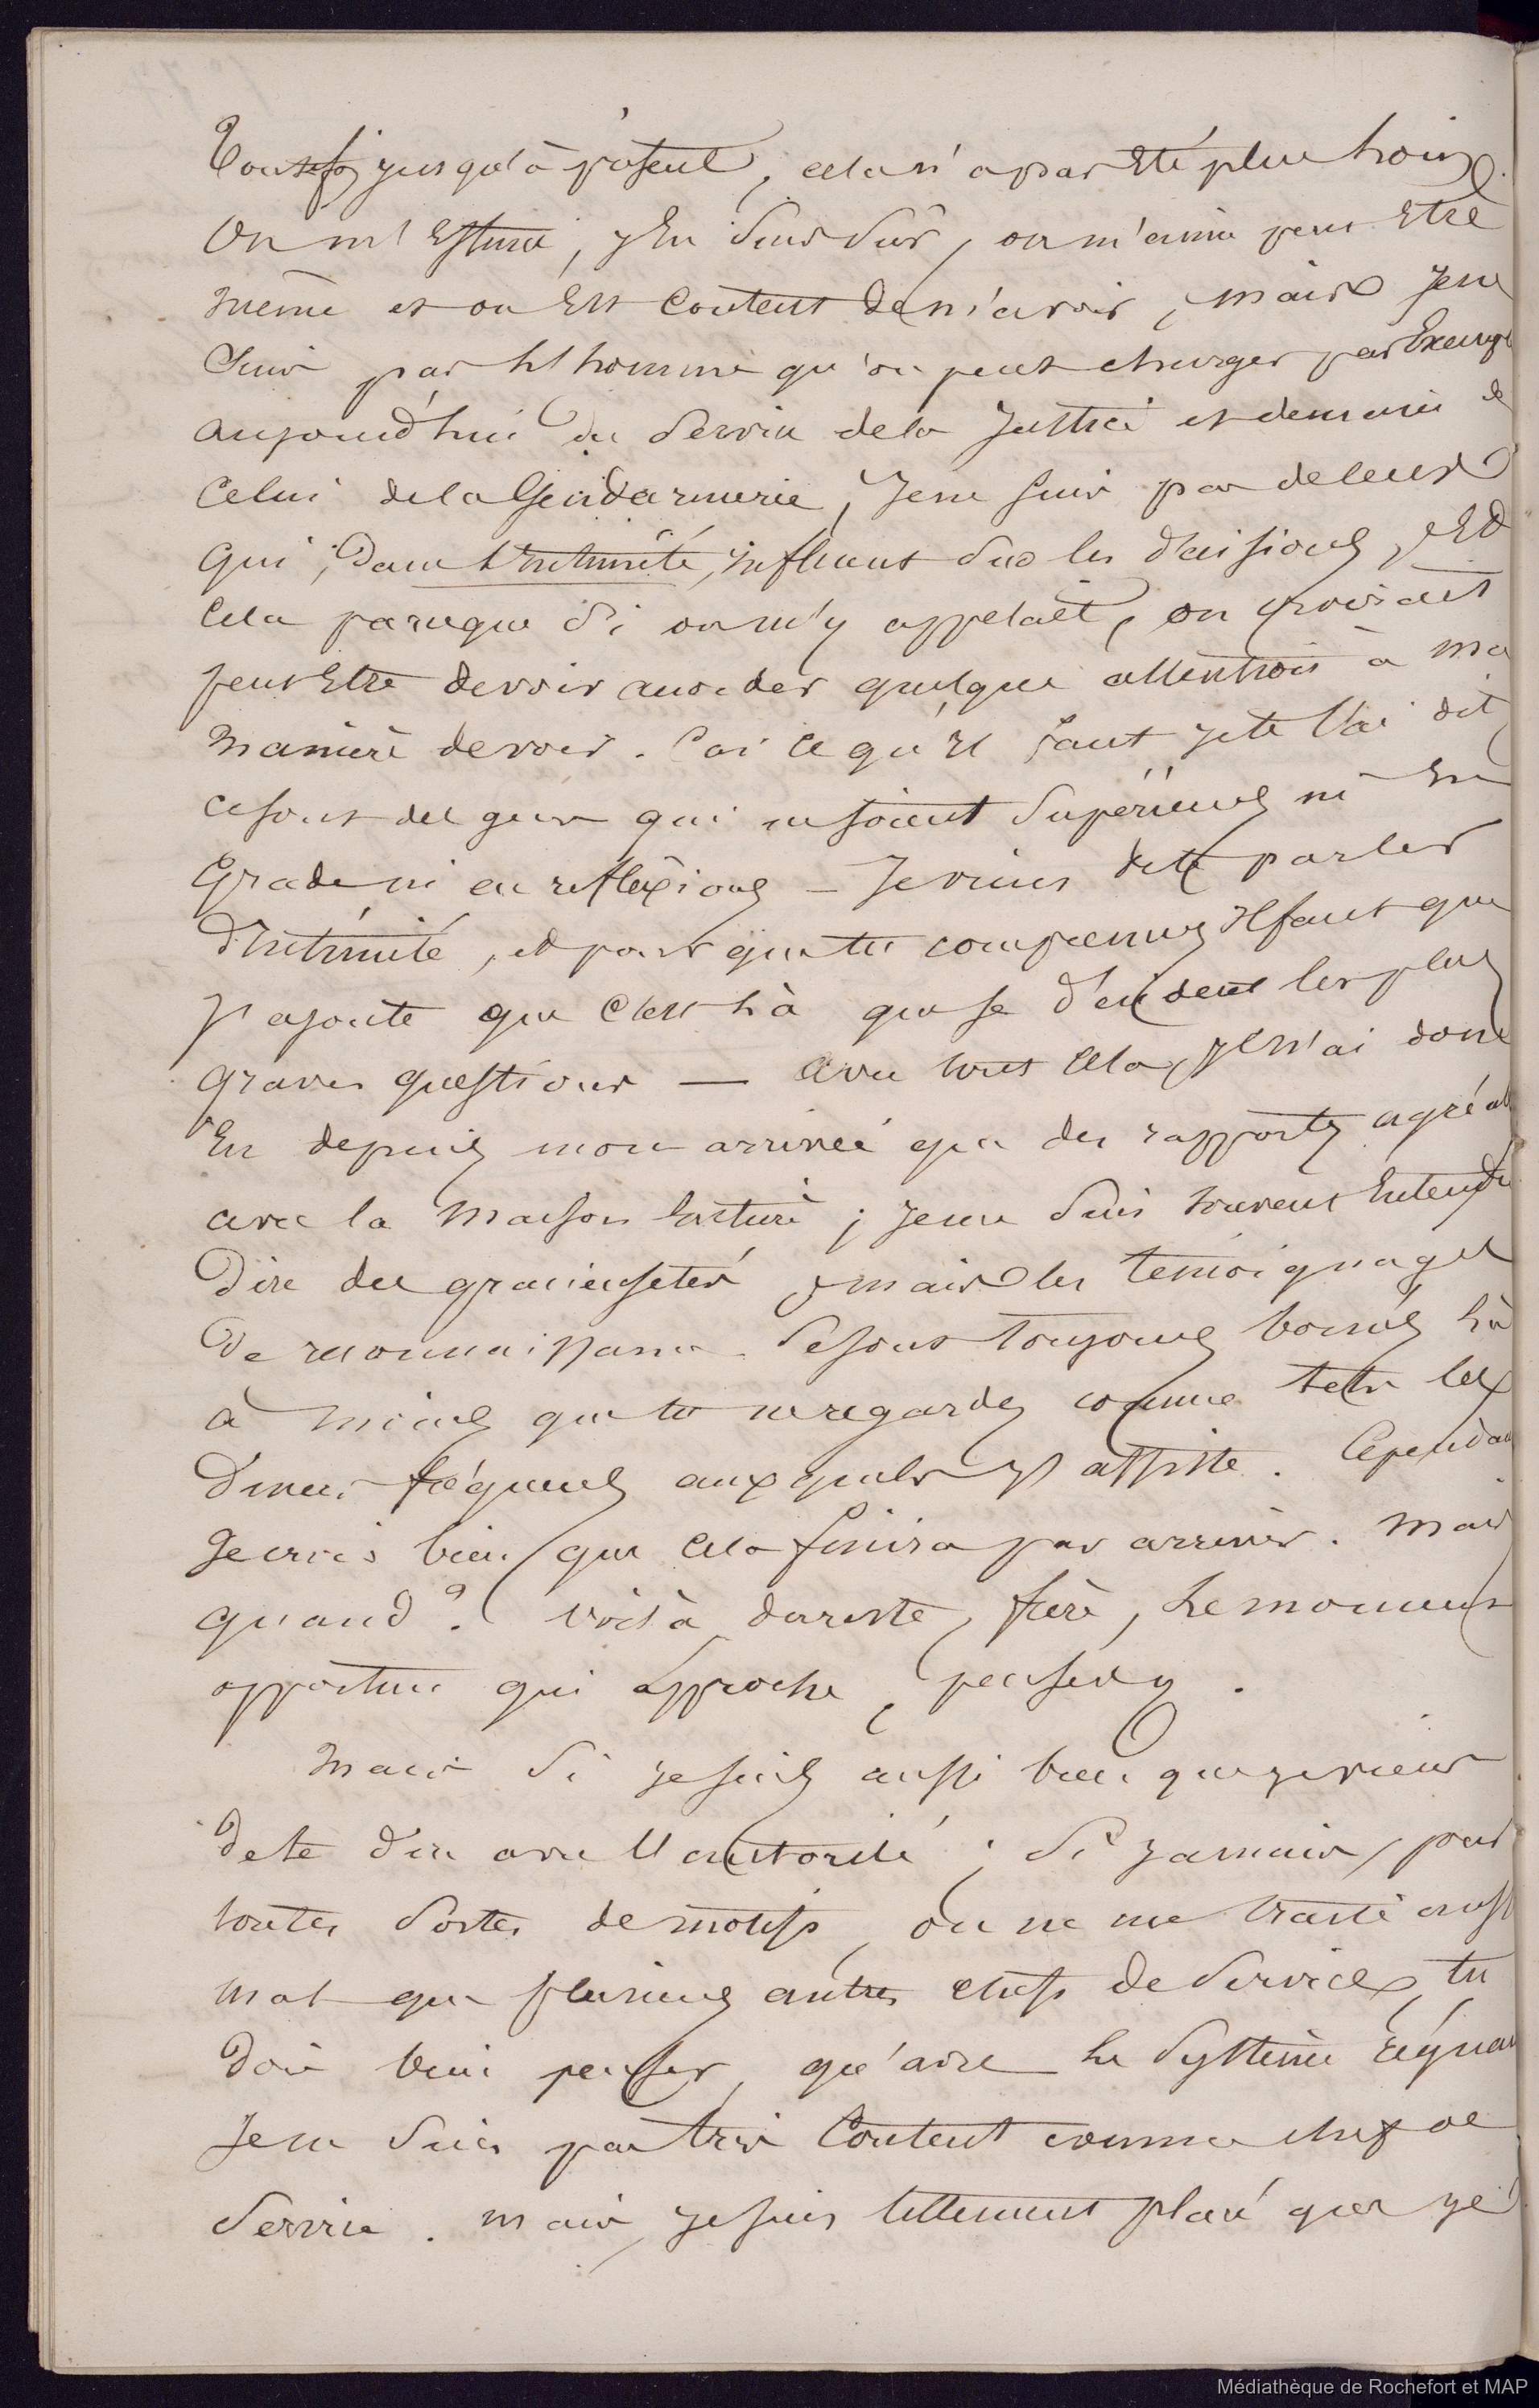 Toutefois jusqu'à présent, cela n'a pas été plus loin.
On m'estime, j'en suis sûr, on m'aime peut être
même et on est content de m'avoir, mais je ne
suis pas l'homme qu'on peut charger par exemple
aujourd'hui du service de la justice et demain de
celui de la Gendarmerie, je ne suis pas de ceux
qui, dans l'intimité, influent sur les décisions, et
cela parceque si on m'y appelait, on croirait
peut être devoir accorder quelque attention à ma
manière de voir. Car ce qu'il faut je te l'ai dit,
ce sont des gens qui ne soient supérieurs ni en
grade ni en réflexions – Je viens de te parler
d'intimité, et pour que tu comprennes il faut que
j'ajoute que c'est là que se décident les plus
graves questions — Avec tout cela, je n'ai donc
eu depuis mon arrivée que des rapports agréab
avec la maison ; je me suis souvent entendu
dire des gracieusetés, mais les témoignages
de reconnaissance se sont toujours bornés là
à moins que tu ne regardes comme tels les
diners fréquents auxquels j'assiste. Cependan
je crois bien que cela finira par arriver. Mais
quand ? Voilà du reste, frère, le moment
opportun qui approche, penses-y.
Mais si je suis aussi bien que je viens
de te dire avec l'autorité ; si jamais, pour
toutes sortes de motifs, on ne me traite aussi
mal que plusieurs autres chefs de service, tu
dois bien penser, qu'avec le système régnan
je ne suis pas très content comme chef de
service. Mais, je suis tellement placé que je
Médiathèque de Rochefort et MAP